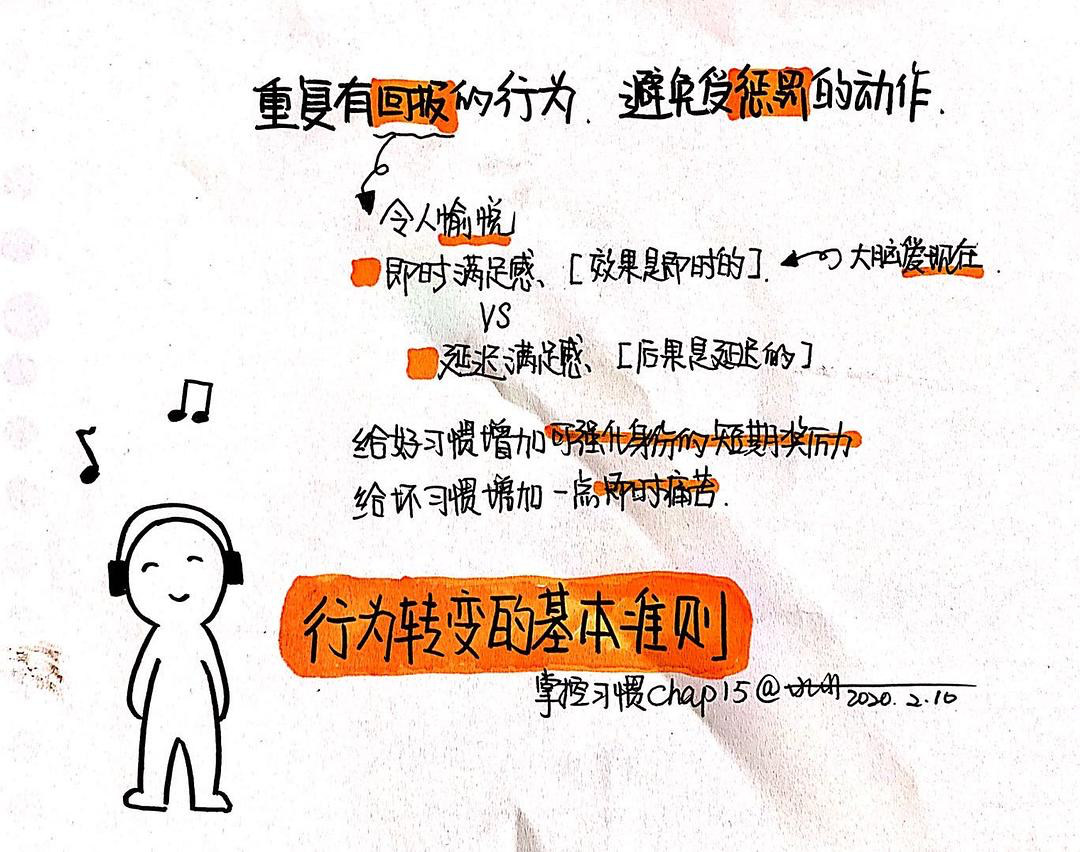 重复有回报的行为. 避免受惩罚的动作.
令人愉悦
即时满足感、[效果是即时的]. 大脑爱现在.
VS
延迟满足感、[后果是延迟的]
给好习惯增加可强化身份的短期奖励
给坏习惯增加一点即时痛苦.
行为转变的基本准则
掌控习惯chap15@ 2020.2.10